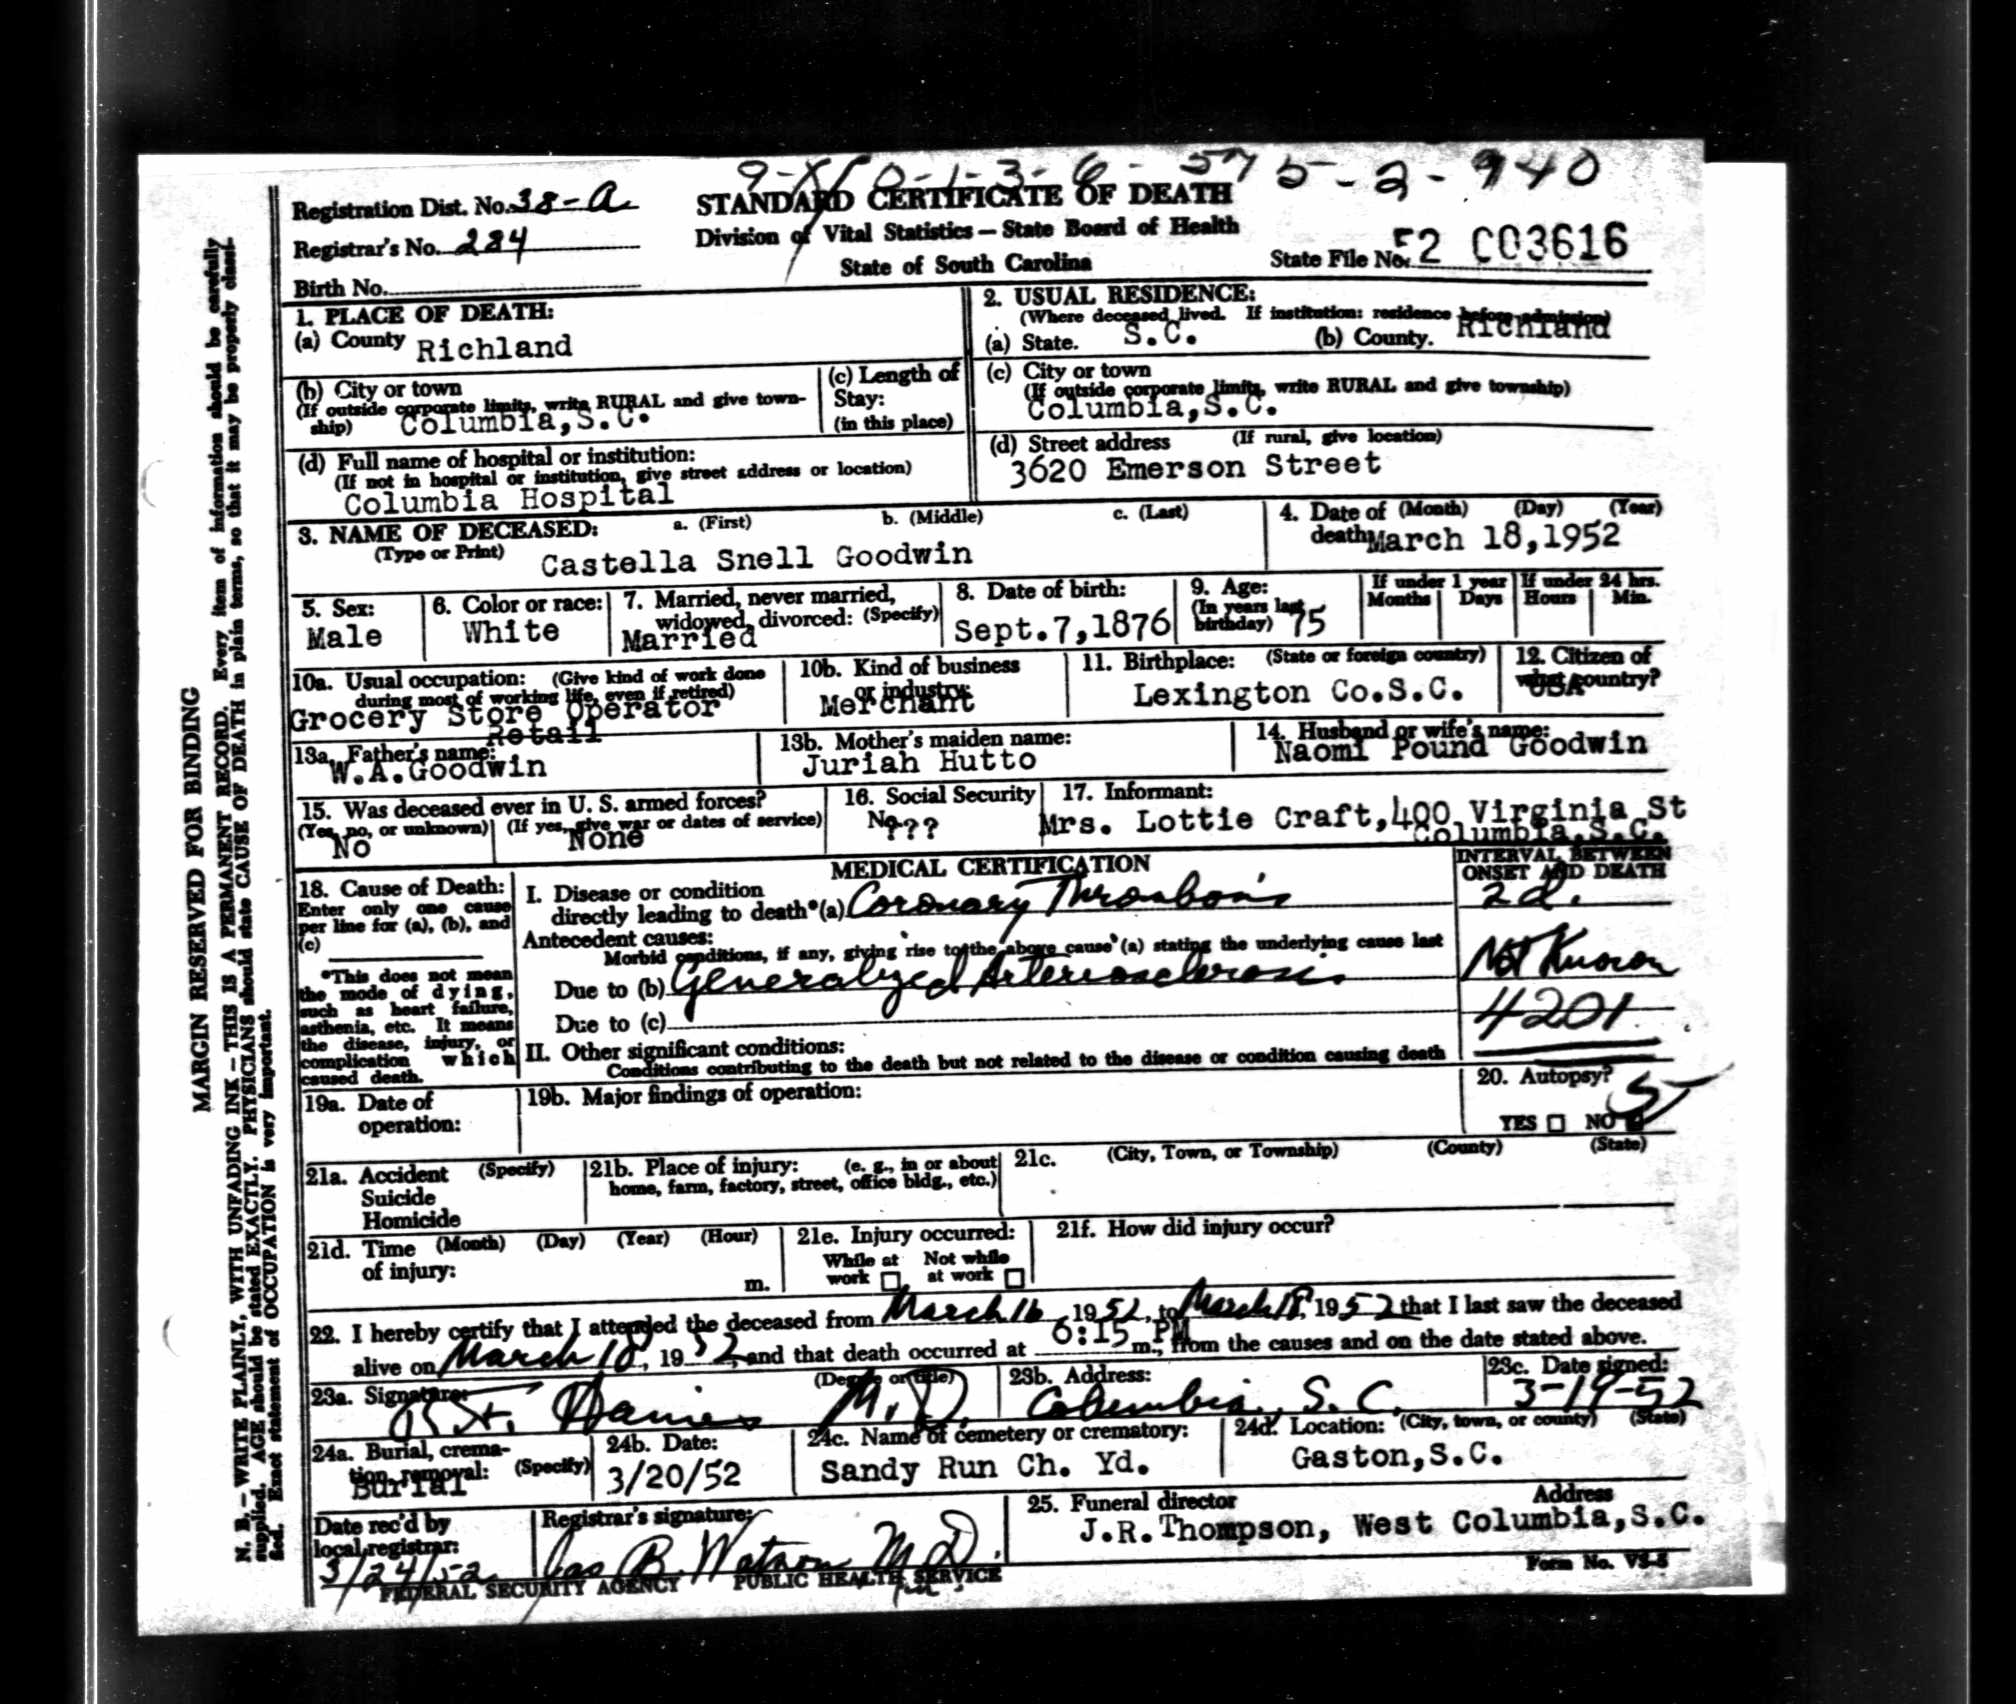 9-X10-1-3-6-575-2-940
Registration Dist. No. 38-A
STANDARD CERTIFICATE OF DEATH
Registrar's No. 284
Division of Vital Statistics — State Board of Health
State of South Carolina
State File No. 52 003616
Birth No.
1. PLACE OF DEATH:
(a) County Richland
2. USUAL RESIDENCE:
(Where deceased lived. If institution: residence before admission)
(a) State. S.C. (b) County. Richland
(b) City or town
(If outside corporate limits, write RURAL and give township)
Columbia,S.C.
(c) Length of
Stay:
(in this place)
(c) City or town
(If outside corporate limits, write RURAL and give township)
Columbia,S.C.
(d) Full name of hospital or institution:
(If not in hospital or institution, give street address or location)
Columbia Hospital
(d) Street address (If rural, give location)
3620 Emerson Street
3. NAME OF DECEASED: a. (First) b. (Middle) c. (Last)
(Type or Print) Castella Snell Goodwin
4. Date of (Month) (Day) (Year)
death: March 18,1952
5. Sex:
Male
6. Color or race:
White
7. Married, never married,
widowed, divorced: (Specify)
Married
8. Date of birth:
Sept.7,1876
9. Age:
(In years last
birthday) 75
If under 1 year
Months Days
If under 24 hrs.
Hours Min.
10a. Usual occupation: (Give kind of work done
during most of working life, even if retired)
Grocery Store Operator
Retail
10b. Kind of business
or industry:
Merchant
11. Birthplace: (State or foreign country)
Lexington Co.S.C.
12. Citizen of
what country?
USA
13a. Father's name:
W.A.Goodwin
13b. Mother's maiden name:
Juriah Hutto
14. Husband or wife's name:
Naomi Pound Goodwin
15. Was deceased ever in U. S. armed forces?
(Yes, no, or unknown) (If yes, give war or dates of service)
No None
16. Social Security
No. ???
17. Informant:
Mrs. Lottie Craft,400 Virginia St
Columbia,S.C.
MEDICAL CERTIFICATION
INTERVAL BETWEEN
ONSET AND DEATH
18. Cause of Death:
Enter only one cause
per line for (a), (b), and
(c)
*This does not mean
the mode of dying,
such as heart failure,
asthenia, etc. It means
the disease, injury, or
complication which
caused death.
I. Disease or condition
directly leading to death*(a) Coronary Thrombosis
2 d.
Antecedent causes:
Morbid conditions, if any, giving rise to the above cause (a) stating the underlying cause last
Due to (b) Generalized Arteriosclerosis
Not Known
Due to (c)
4201
II. Other significant conditions:
Conditions contributing to the death but not related to the disease or condition causing death
19a. Date of
operation:
19b. Major findings of operation:
20. Autopsy?
YES NO
21a. Accident (Specify)
Suicide
Homicide
21b. Place of injury: (e. g., in or about
home, farm, factory, street, office bldg., etc.)
21c. (City, Town, or Township) (County) (State)
21d. Time (Month) (Day) (Year) (Hour)
of injury: m.
21e. Injury occurred:
While at Not while
work at work
21f. How did injury occur?
22. I hereby certify that I attended the deceased from March 16, 1952, to March 18, 1952 that I last saw the deceased
alive on March 18, 1952, and that death occurred at 6:15 PM m., from the causes and on the date stated above.
23a. Signature: (Degree or title)
M.D.
23b. Address:
Columbia, S. C.
23c. Date signed:
3-19-52
24a. Burial, crema-
tion, removal: (Specify)
Burial
24b. Date:
3/20/52
24c. Name of cemetery or crematory:
Sandy Run Ch. Yd.
24d. Location: (City, town, or county) (State)
Gaston,S.C.
Date rec'd by
local registrar:
3/24/52
Registrar's signature:
Jas B. Watson M.D.
25. Funeral director Address
J.R.Thompson, West Columbia,S.C.
FEDERAL SECURITY AGENCY PUBLIC HEALTH SERVICE
Form No. VS-5
MARGIN RESERVED FOR BINDING
N. B.—WRITE PLAINLY, WITH UNFADING INK—THIS IS A PERMANENT RECORD. Every item of information should be carefully
supplied. AGE should be stated EXACTLY. PHYSICIANS should state CAUSE OF DEATH in plain terms, so that it may be properly classi-
fied. Exact statement of OCCUPATION is very important.